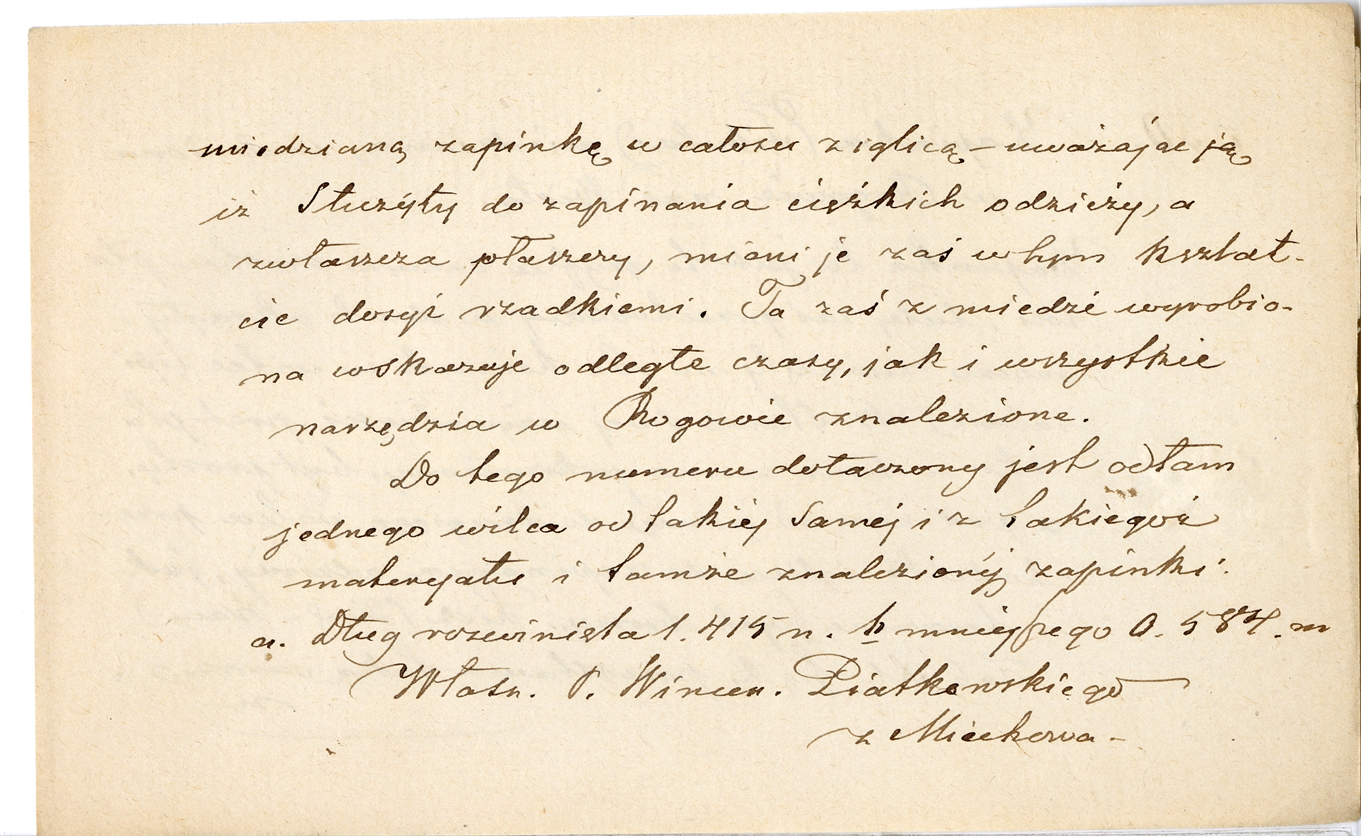 miedzianą zapinkę w całości z iglicą – uważając ją
iż Służyły do zapinania ciężkich odzieży, a
zwłaszcza płaszczy, miani je zaś w tym kształt-
cie dosyć rzadkiemi. Ta zaś z miedzi wyrobio-
na wskazuje odległe czasy, jak i wszystkie
narzędzia w Rogowie znalezione.
Do tego numeru dołączony jest odłam
jednego wilca od takiej Samej i z takiegoż
materyału i tamże znalezionéj zapinki.
a. Dług rozwinięta 1.415 m. b mniejszego 0.584. m
Własn. P. Wincen. Piatkowskiego
z Miechowa –